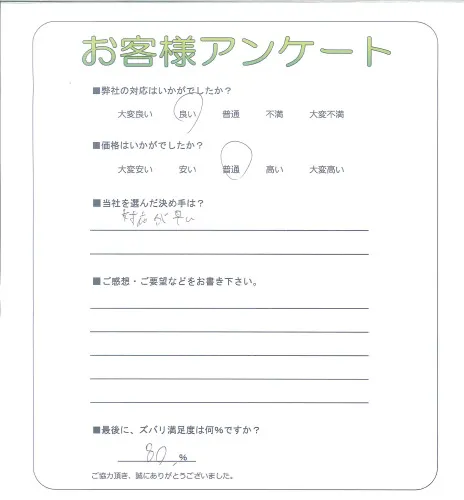 お客様アンケート
■弊社の対応はいかがでしたか？
大変良い 良い 普通 不満 大変不満
■価格はいかがでしたか？
大変安い 安い 普通 高い 大変高い
■当社を選んだ決め手は？
対応が早い
■ご感想・ご要望などをお書き下さい。
■最後に、ズバリ満足度は何%ですか？
80 %
ご協力頂き、誠にありがとうございました。